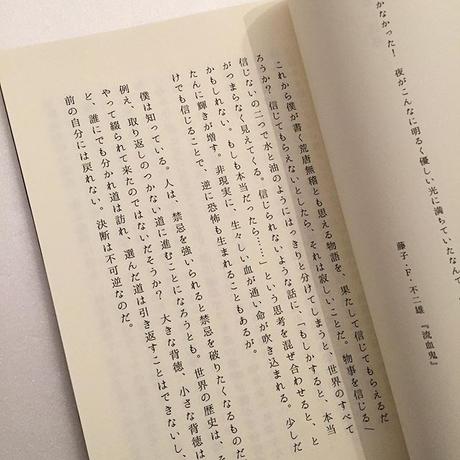 かなかった! 夜がこんなに明るく優しい光に満ちていたなんて
藤子・F・不二雄『流血鬼』
これから僕が書く荒唐無稽とも思える物語を、果たして信じてもらえるだ
ろうか? 信じてもらえないとしたら、それは寂しいことだ。物事を信じる/
信じないの二つで水と油のようにはっきりと分けてしまうと、世界のすべて
がつまらなく見えてくる。信じられないような話に、「もしかすると、本当
かもしれない。もしも本当だったら……」という思考を混ぜ合わせると、と
たんに輝きが増す。非現実に、生々しい血が通い命が吹き込まれる。少しだ
けでも信じることで、逆に恐怖も生まれることもあるが。
僕は知っている。人は、禁忌を強いられると禁忌を破りたくなるものだ
例え、取り返しのつかない道に進むことになろうとも。世界の歴史は、そ
やって綴られて来たのではないだろうか? 大きな背徳、小さな背徳は
と、誰にでも分かれ道は訪れ、選んだ道は引き返すことはできないし、
前の自分には戻れない。決断は不可逆なのだ。